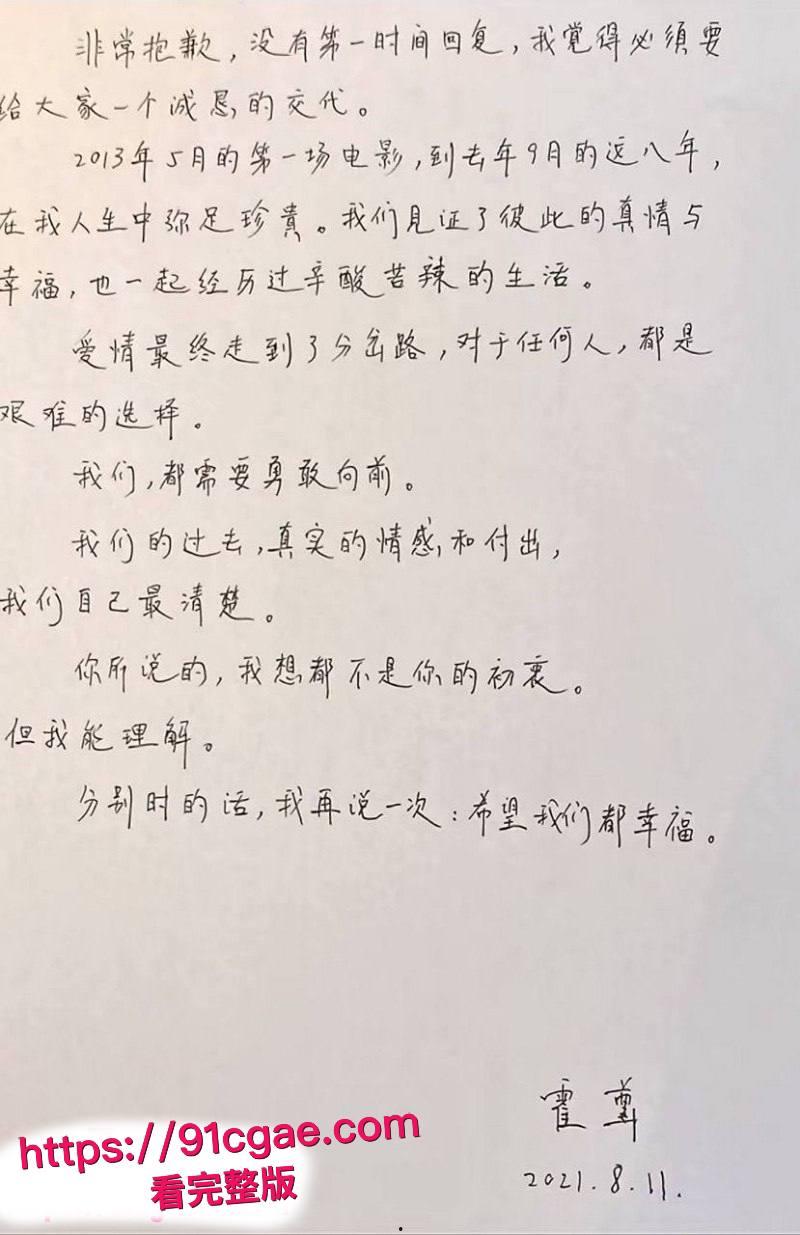 非常抱歉，没有第一时间回复，我觉得必须要
给大家一个诚恳的交代。
2013年5月的第一场电影，到去年9月的这八年，
在我人生中弥足珍贵。我们见证了彼此的真情与
幸福，也一起经历过辛酸苦辣的生活。
爱情最终走到了分岔路，对于任何人，都是
艰难的选择。
我们，都需要勇敢向前。
我们的过去，真实的情感和付出，
我们自己最清楚。
你所说的，我想都不是你的初衷。
但我能理解。
分别时的话，我再说一次：希望我们都幸福。
霍尊
2021.8.11.
https://91cgae.com
看完整版